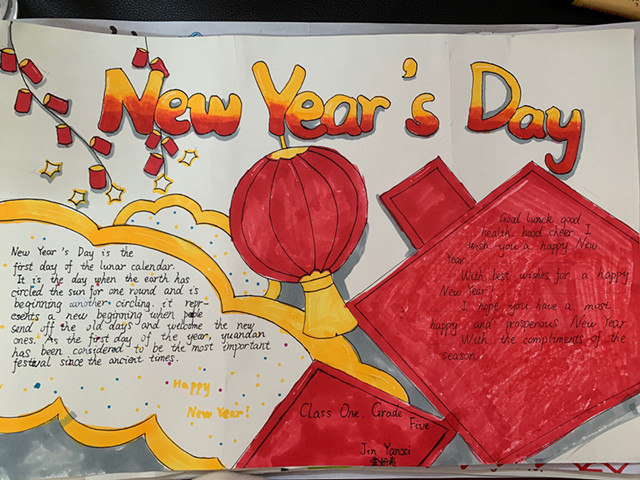 New Year's Day
New Year's Day is the
first day of the lunar calendar.
It is the day when the earth has
circled the sun for one round and is
beginning another circling. it repr-
esents a new beginning when people
send off the old days and welcome the new
ones. As the first day of the year, yuandan
has been considered to be the most important
festival since the ancient times.
Happy
New Year!
Good lunck good
health. hood cheer. I
wish you a happy New
Year.
With best wishes for a happy
New Year!
I hope you have a most
happy and prosperous New Year.
With the compliments of the
season.
Class One, Grade
Five
Jin Yanxi